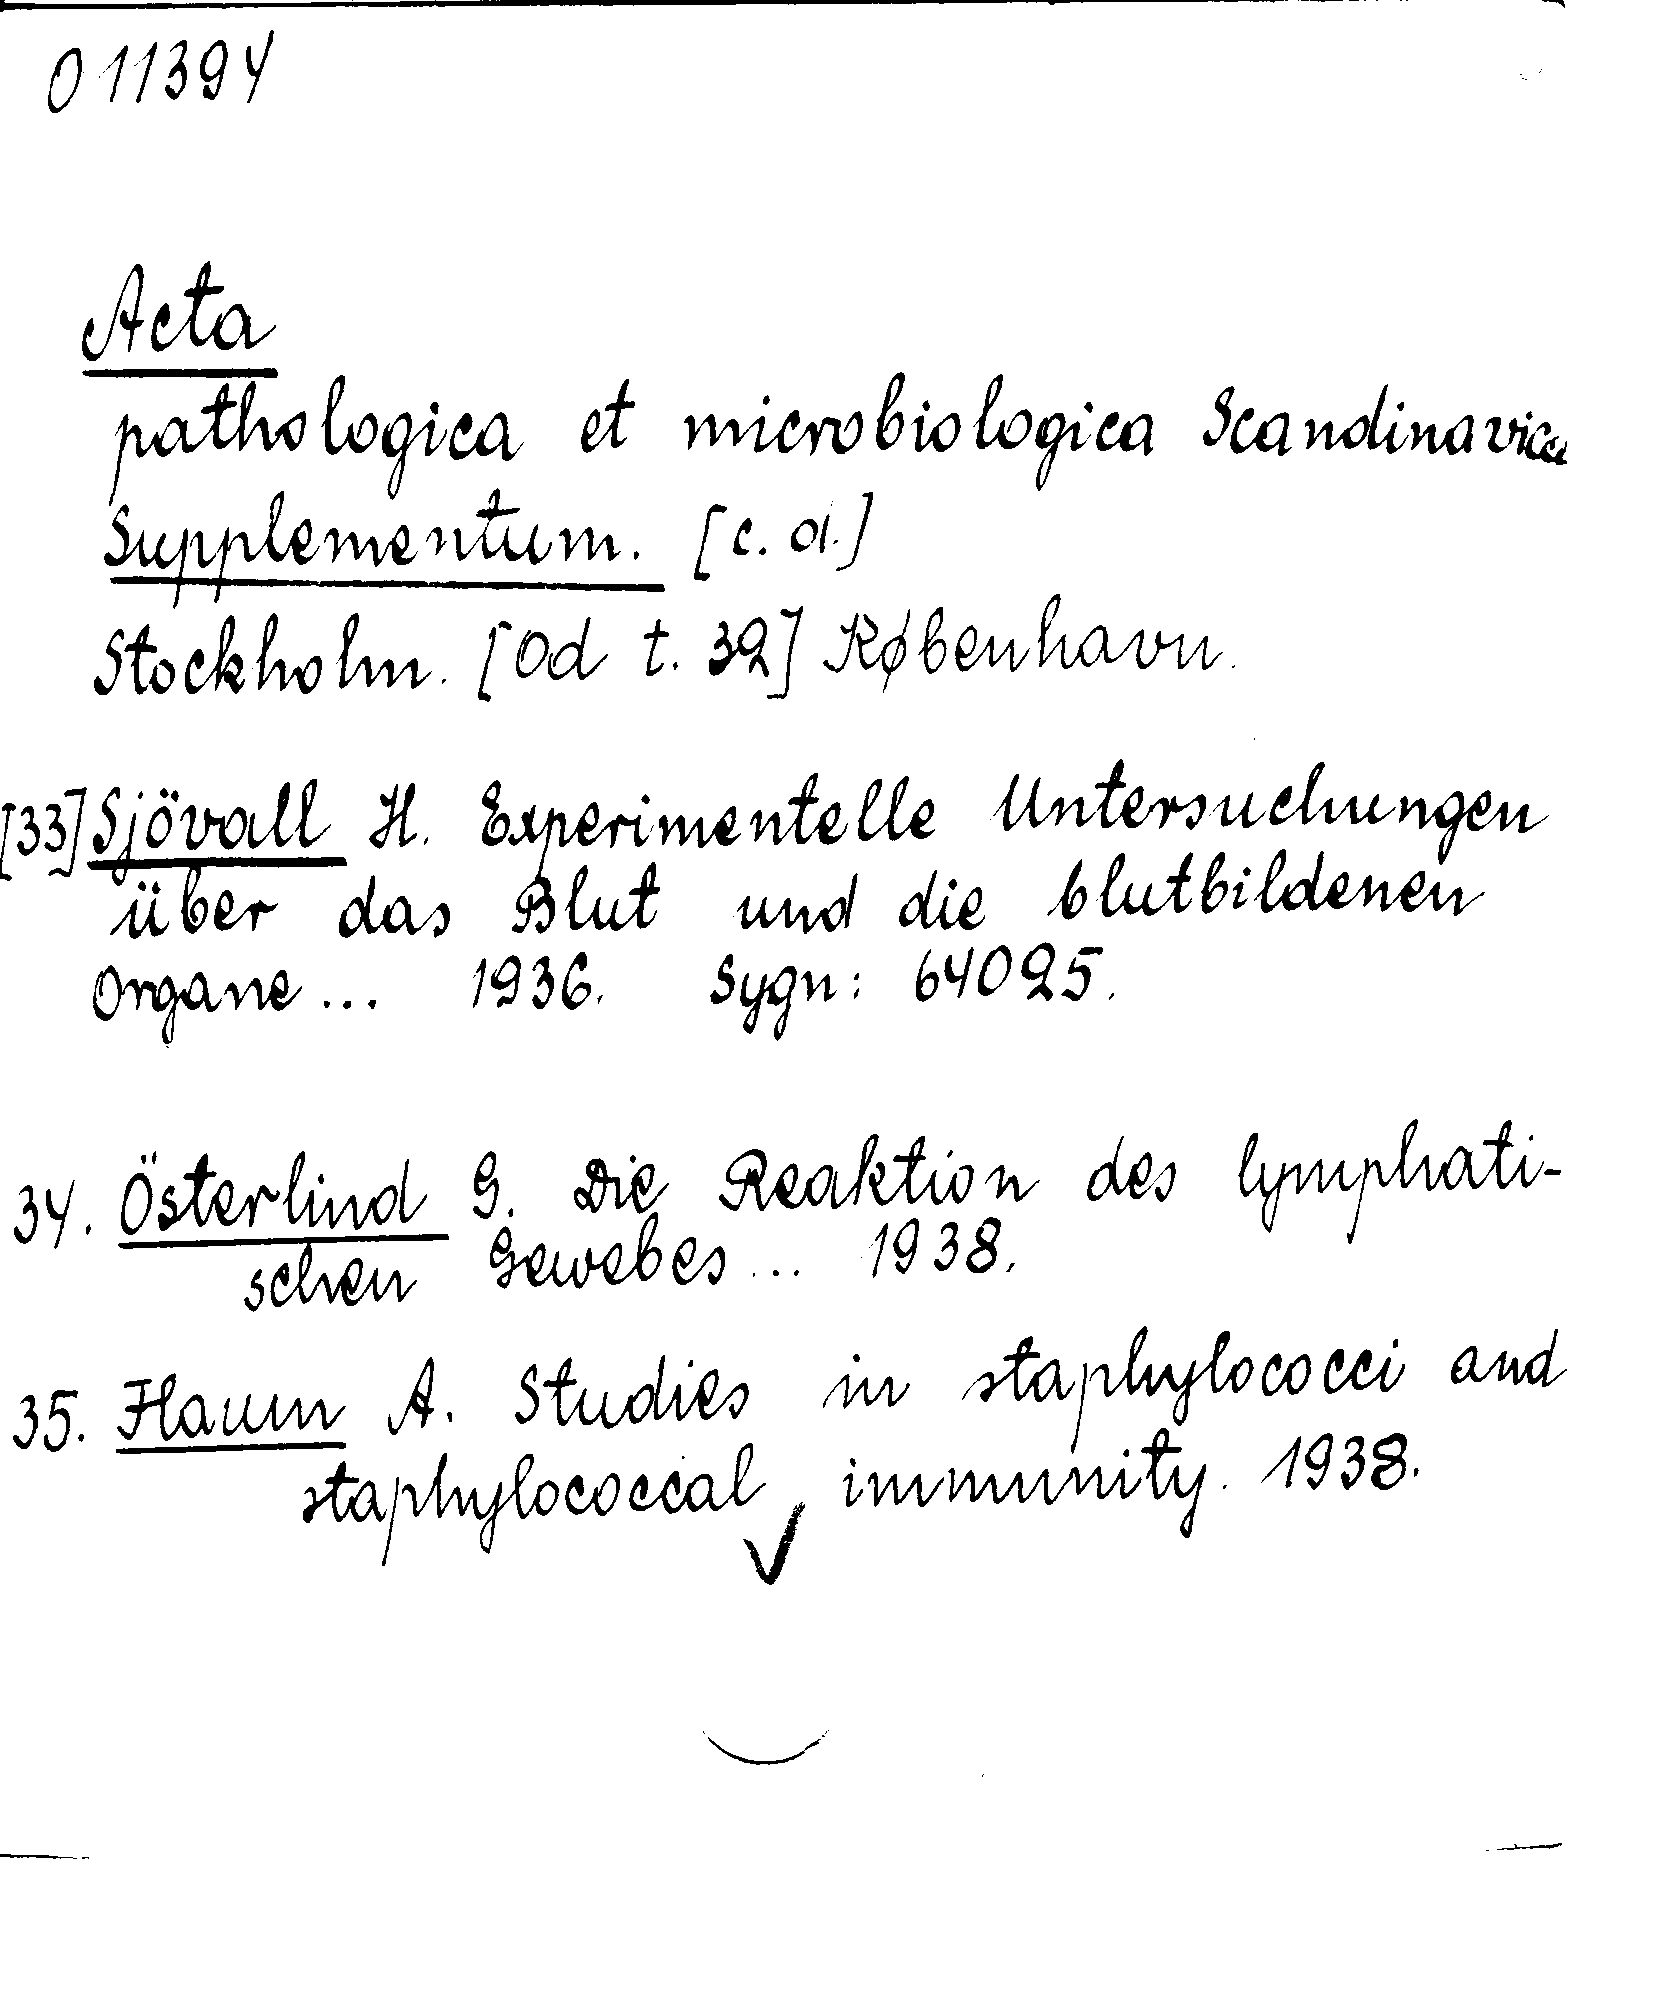 011394
Acta
pathologica et microbiologica Scandinavica
Supplementum. [c. d.]
Stockholm. [Od t. 32] København.
[33] Sjövall H. Experimentelle Untersuchungen
über das Blut und die blutbildenen
Organe... 1936. Sygn: 64025.
34. Österlind G. Die Reaktion des lymphati-
schen Gewebes... 1938.
35. Flaum A. Studies in staphylococci and
staphylococcal immunity. 1938.